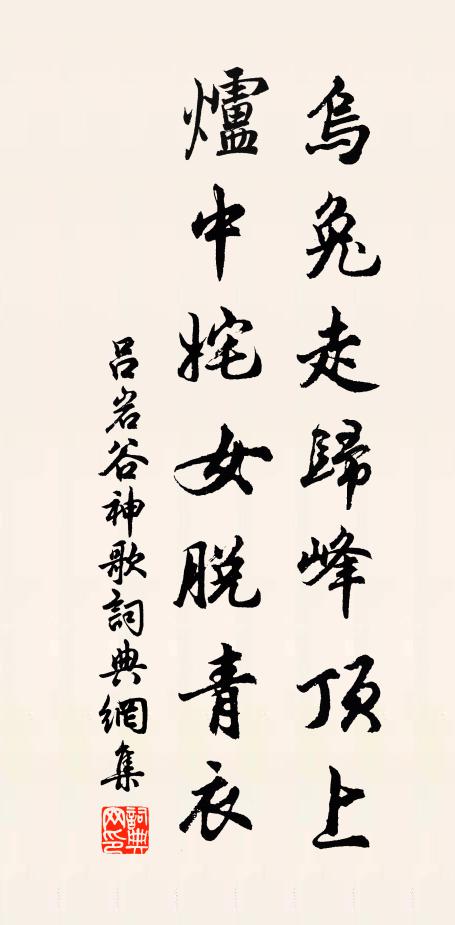 烏兔走歸峰頂上
爐中姹女脫青衣
吕岩谷神歌詞典網集
詞典網印